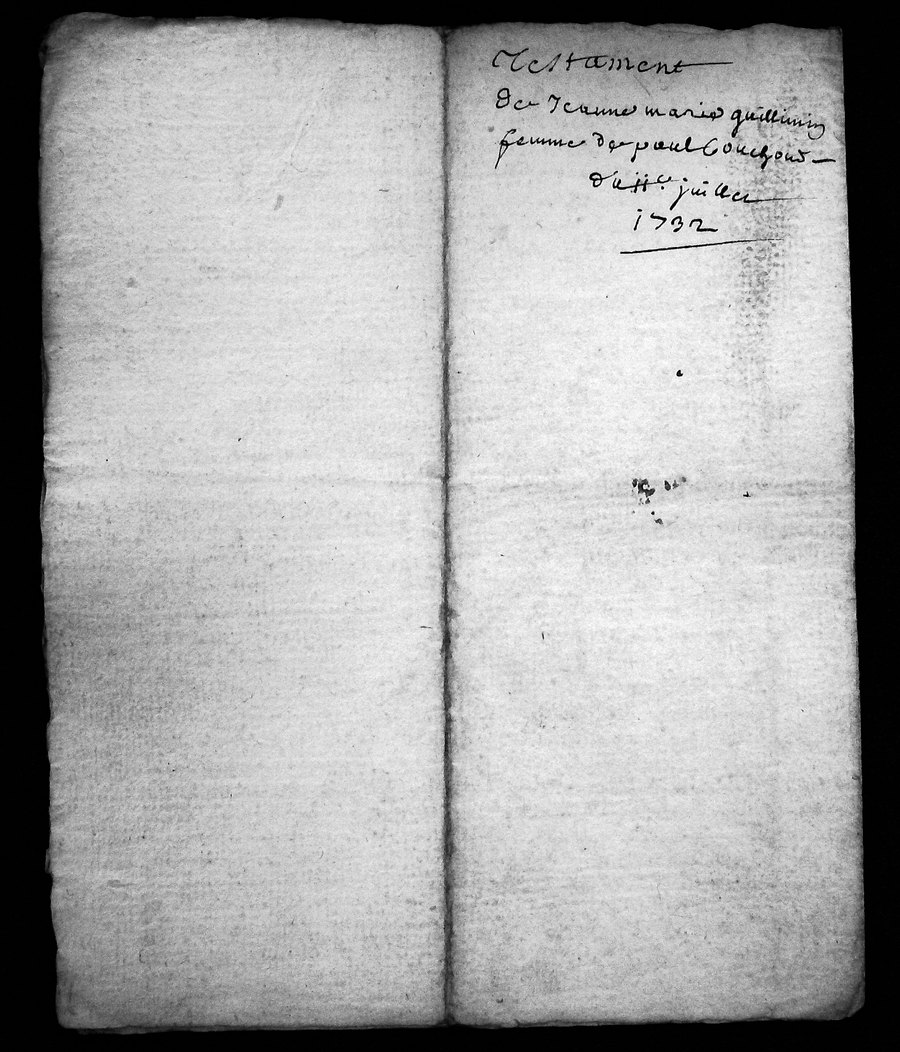 Testament
de Jeanne marie guillimin
femme de paul Couchoud
du 11e juillet
1732